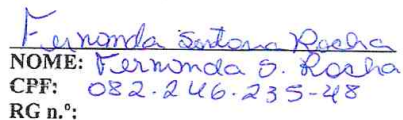 Fernanda Santana Rocha
NOME: Fernanda S. Rocha
CPF: 082.246.235-48
RG n.º: